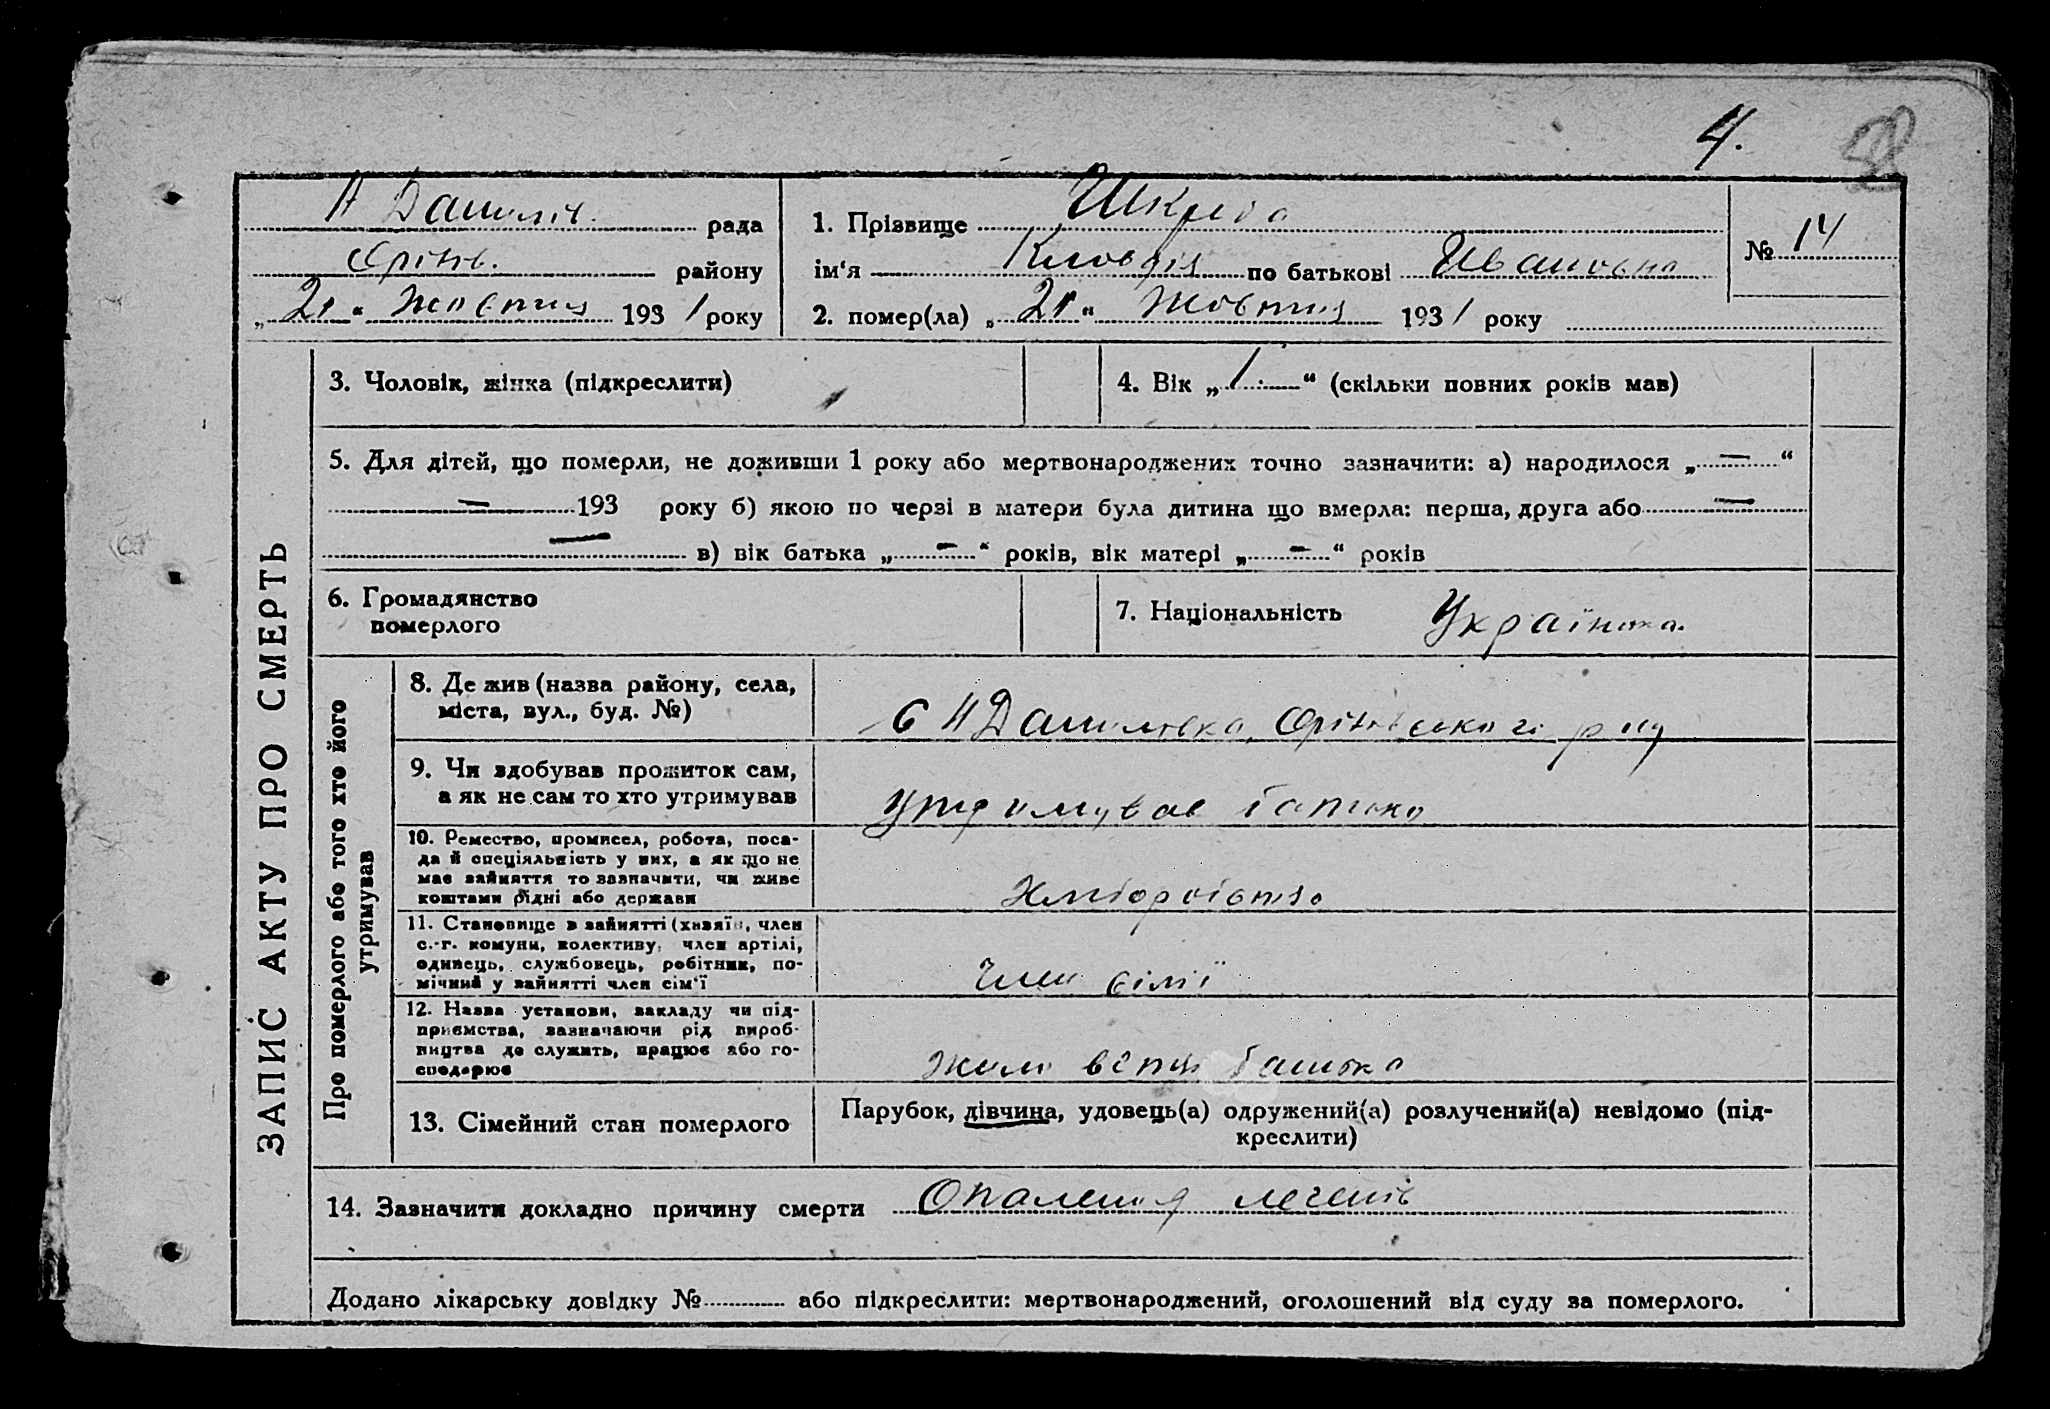 4.
Н Данилів. рада
Орінь. району
„21“ Жовтня 1931 року
1. Прізвище Шкреба
ім'я Кловдія по батькові Ивановна
2. помер(ла) „21“ Жовтня 1931 року
№ 14
ЗАПИС АКТУ ПРО СМЕРТЬ
3. Чоловік, жінка (підкреслити)
4. Вік „1.“ (скільки повних років мав)
5. Для дітей, що померли, не доживши 1 року або мертвонароджених точно зазначити: а) народилося „—“
— 193 року б) якою по черзі в матери була дитина що вмерла: перша, друга або —
— в) вік батька „—“ років, вік матері „—“ років
6. Громадянство
померлого
7. Національність Українка.
Про померлого або того хто його
утримував
8. Де жив (назва району, села,
міста, вул., буд. №)
с Н Данилівка, Орінівського р ну
9. Чи здобував прожиток сам,
а як не сам то хто утримував
утримував батько
10. Ремество, промисел, робота, поса-
да й специяльність у них, а як що не
має зайняття то зазначити, чи живе
коштами рідні або держави
Хліборобство
11. Становище в зайнятті (хазяїн, член
с.-г. комуни, колективу, член артілі,
одинець, службовець, робітник, по-
мічний у зайнятті член сім'ї
Член сімї
12. Назва установи, закладу чи під-
приємства, зазначаючи рід вироб-
ництва де служить, працює або го-
сподарює
батька
13. Сімейний стан померлого
Парубок, дівчина, удовець(а) одружений(а) розлучений(а) невідомо (під-
креслити)
14. Зазначити докладно причину смерти Опаления легенів
Додано лікарську довідку № або підкреслити: мертвонароджений, оголошений від суду за померлого.